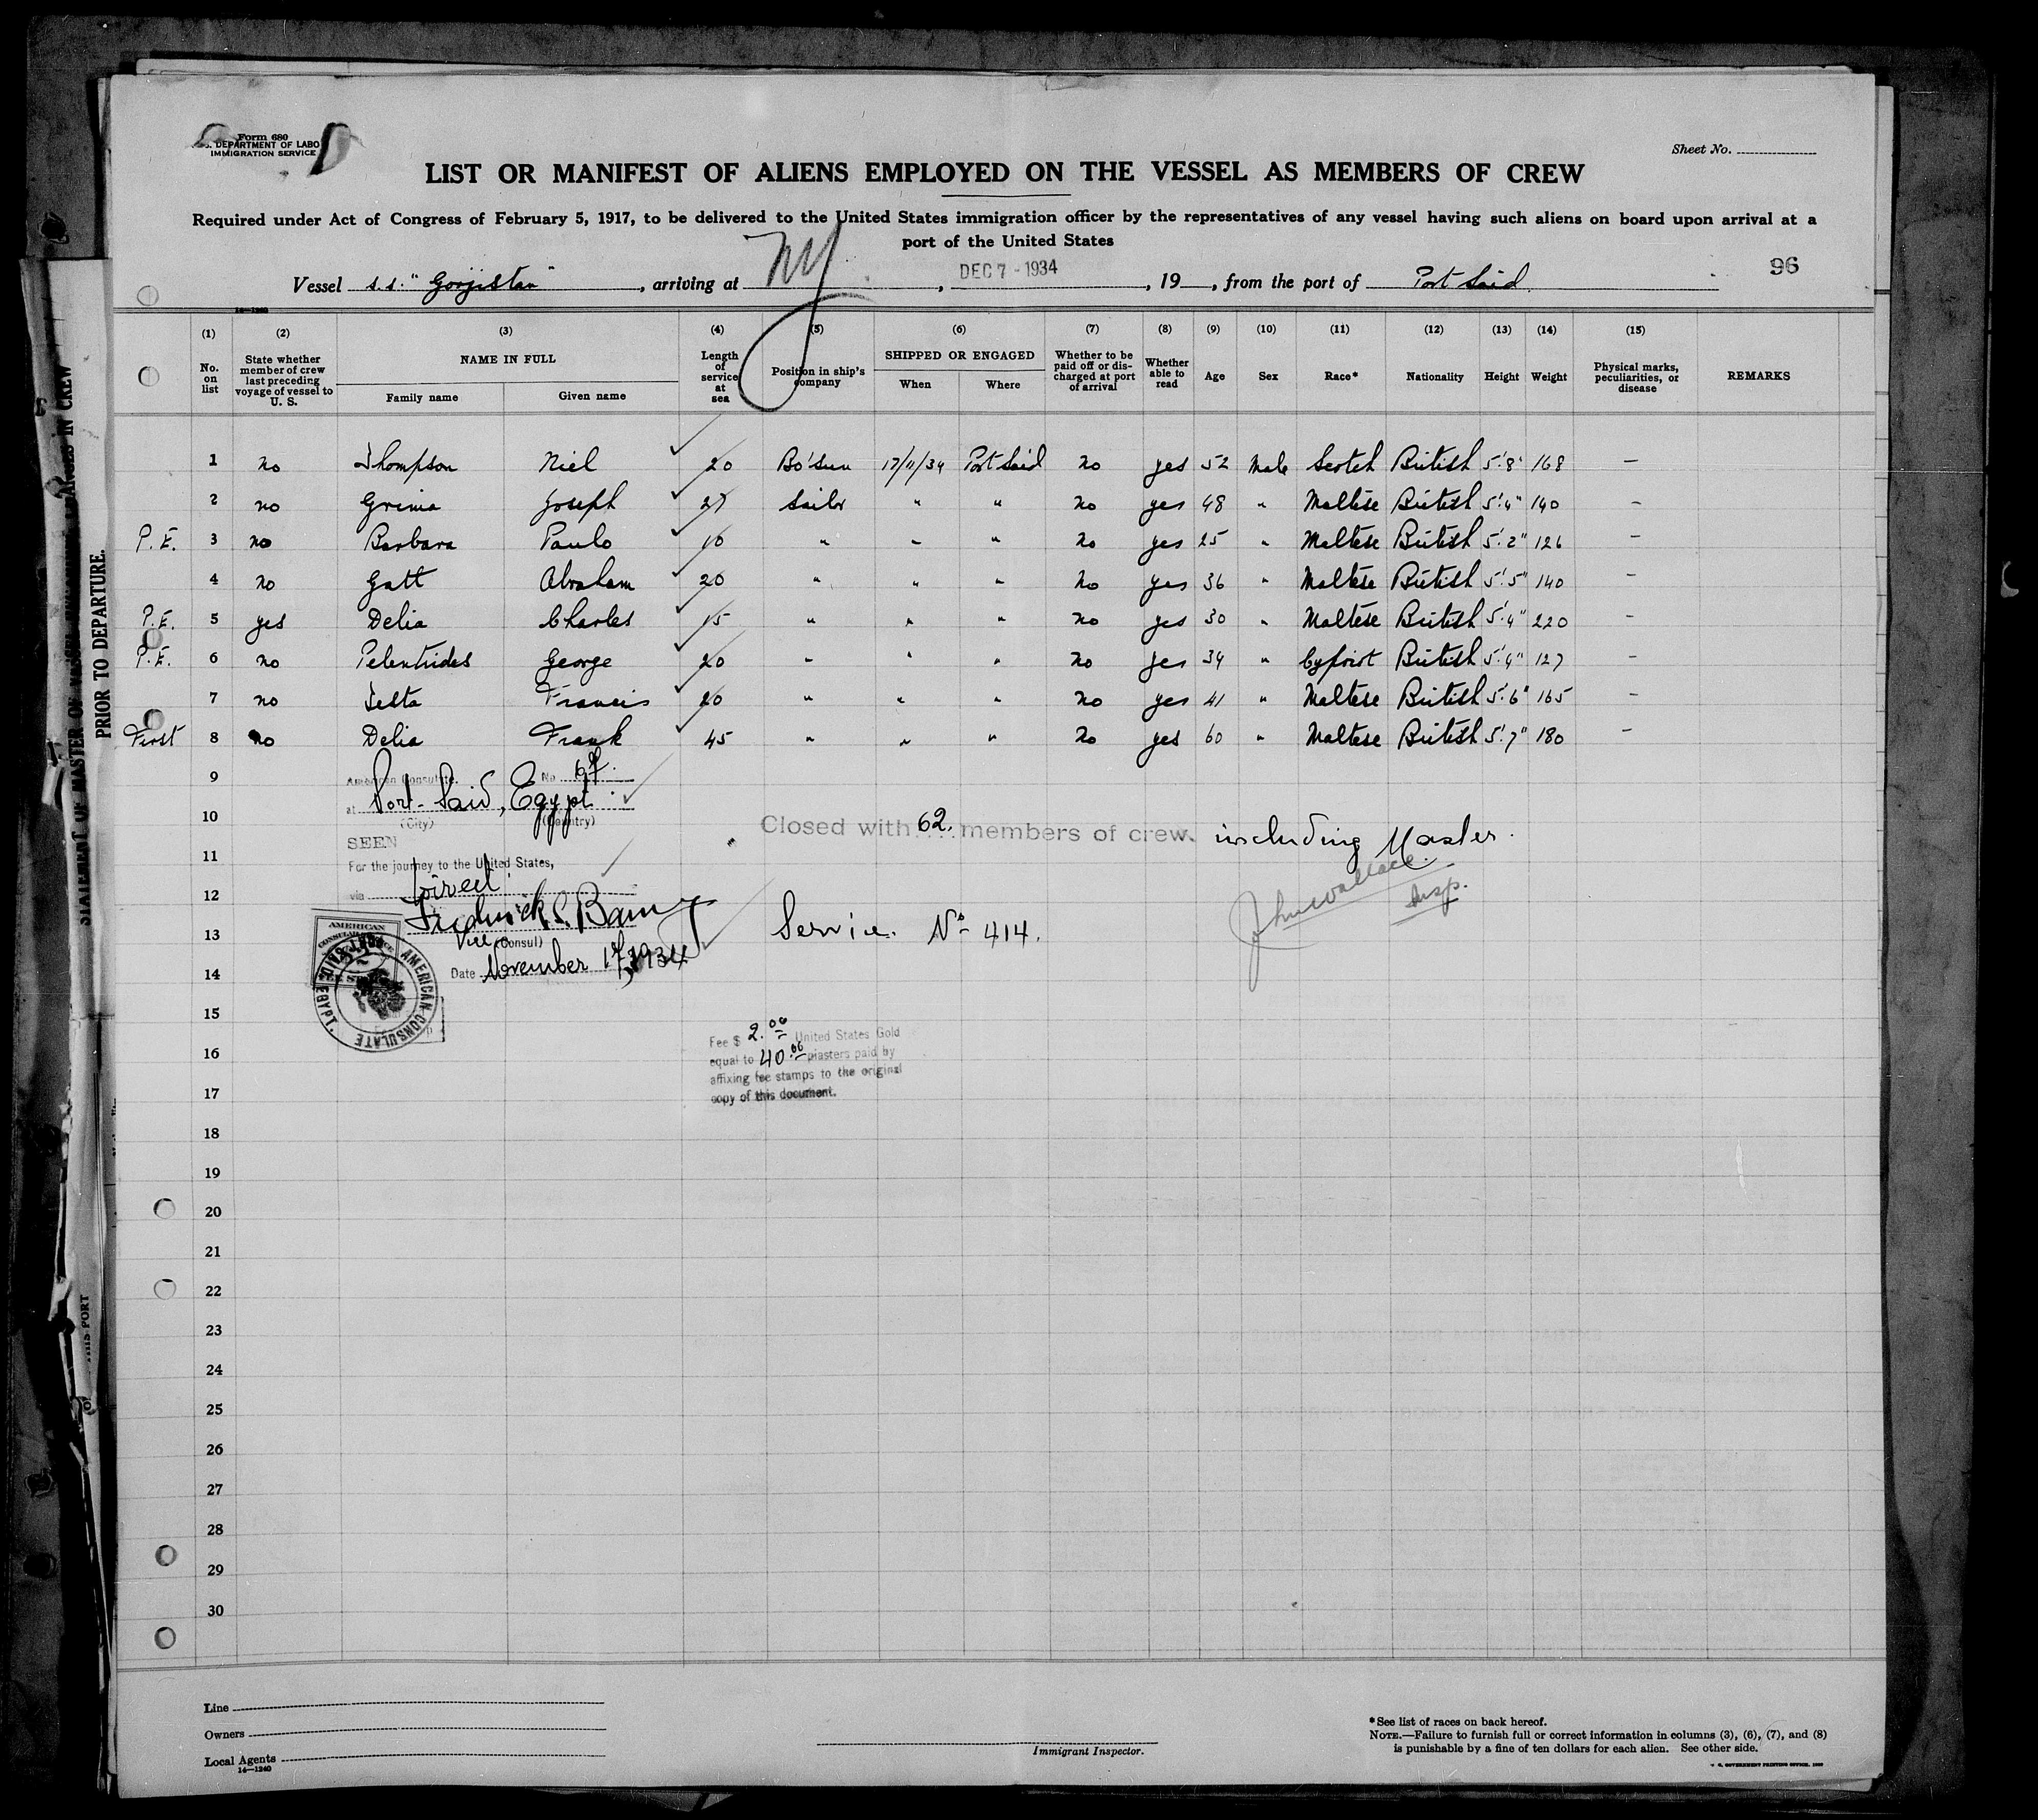 Form 680
DEPARTMENT OF LABO
IMMIGRATION SERVICE
Sheet No.
LIST OR MANIFEST OF ALIENS EMPLOYED ON THE VESSEL AS MEMBERS OF CREW
Required under Act of Congress of February 5, 1917, to be delivered to the United States immigration officer by the representatives of any vessel having such aliens on board upon arrival at a
port of the United States
Vessel s.s. "Gorjistan", arriving at NY, DEC 7 - 1934, 19 , from the port of Port Said. 96
14—1240
(1) (2) (3) (4) (5) (6) (7) (8) (9) (10) (11) (12) (13) (14) (15)
No. on list
State whether member of crew last preceding voyage of vessel to U. S.
NAME IN FULL
Family name Given name
Length of service at sea
Position in ship's company
SHIPPED OR ENGAGED
When Where
Whether to be paid off or discharged at port of arrival
Whether able to read
Age
Sex
Race*
Nationality
Height
Weight
Physical marks, peculiarities, or disease
REMARKS
1 no Thompson Niel 20 Bo'sun 17/11/34 Port Said no yes 52 Male Scotch British 5'.8" 168 —
2 no Grima Joseph 27 Sailor " " no yes 48 " Maltese British 5'.4" 140 —
P.E. 3 no Barbara Paulo 10 " " " no yes 25 " Maltese British 5'.2" 126 —
4 no Gatt Abraham 20 " " " no yes 36 " Maltese British 5'.5" 140 —
P.E. 5 yes Delia Charles 15 " " " no yes 30 " Maltese British 5'.4" 220 —
P.E. 6 no Pelentrides George 20 " " " no yes 34 " Cypriot British 5'.4" 127 —
7 no Testa Francis 20 " " " no yes 41 " Maltese British 5'.6" 165 —
First 8 no Delia Frank 45 " " " no yes 60 " Maltese British 5'.7" 180 —
9
American Consulate. No
at Port-Said, Egypt
(City) (Country)
10
Closed with 62. members of crew. including Master.
SEEN
11
For the journey to the United States,
12
via
John Wallace
Insp.
Frederick L.
Vice (Consul)
13
Service. No 414.
Date November 17, 1934
14
AMERICAN
AMERICAN CONSULATE PORT SAID, EGYPT.
15
Fee $ 2.00 United States Gold
16
equal to 40.00 piasters paid by
affixing fee stamps to the original
17
copy of this document.
18
19
20
21
22
23
24
25
26
27
28
29
30
Line
Owners
Local Agents
14—1240
Immigrant Inspector.
*See list of races on back hereof.
NOTE.—Failure to furnish full or correct information in columns (3), (6), (7), and (8)
is punishable by a fine of ten dollars for each alien. See other side.
PRIOR TO DEPARTURE.